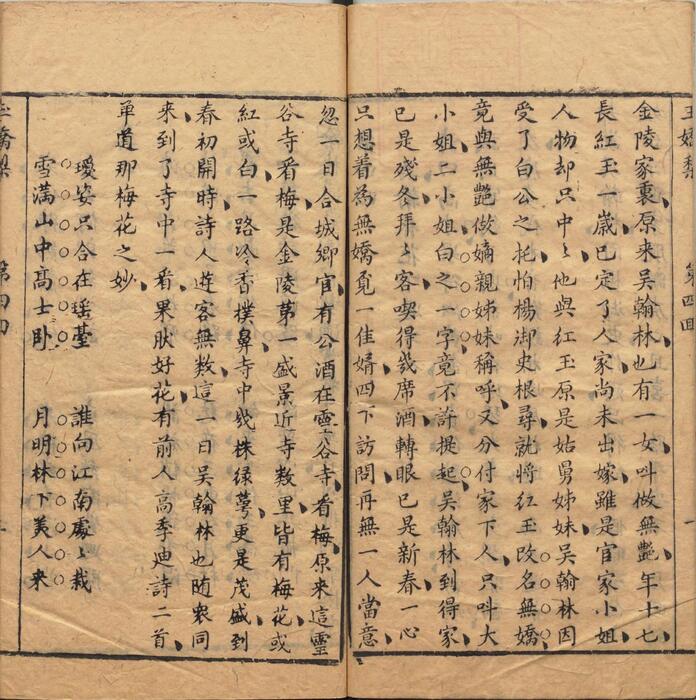 玉嬌梨
第四回
金陵家裏原來吳翰林也有一女呌做無艷年十七
長紅玉一歲已定了人家尚未出嫁雖是官家小姐
人物却只中〻他與紅玉原是姑舅姊妹吳翰林因
受了白公之托怕楊御史根尋就將紅玉改名無嬌
竟與無艷做嫡親姊妹稱呼又分付家下人只呌大
小姐二小姐白之一字竟不許提起吳翰林到得家
已是殘冬拜〻客喫得幾席酒轉眼已是新春一心
只想着為無嬌覓一佳婿四下訪問再無一人當意
忽一日合城鄉官有公酒在靈谷寺看梅原來這靈
谷寺看梅是金陵苐一盛景近寺数里皆有梅花或
紅或白一路冷香撲鼻寺中幾株緑萼更是茂盛到
春初開時詩人遊客無数這一日吳翰林也随衆同
來到了寺中一看果肰好花有前人高季迪詩二首
单道那梅花之妙
瓊安只合在瑶臺 誰向江南處〻栽
雪满山中高士卧 月明林下美人来
玉嬌梨
第四回